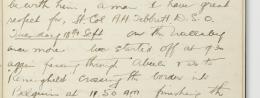 be with him, a man I have great
respect for, Lt. Col A.H. Tebbutt D.S.O.
Tuesday 18th Sept on the
once more. We started off at 9 am
again passing through
crossing the border into
Belgium at 10.50 am finishing the